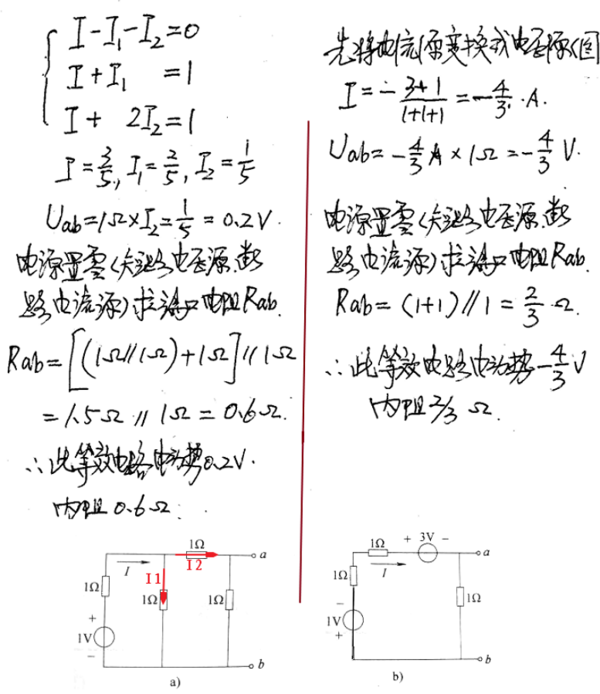 I-I₁-I₂=0
I+I₁ =1
I+ 2I₂=1
I=3/5, I₁=2/5, I₂=1/5
Uab=1Ω×I₂=1/5=0.2V.
电源置零(短路电压源、断
路电流源)求端口电阻Rab.
Rab=[(1Ω//1Ω)+1Ω]//1Ω
=1.5Ω//1Ω=0.6Ω.
∴此等效电路电动势0.2V.
内阻0.6Ω.
1Ω
a
I
I2
I1
1Ω
1Ω
1Ω
+
1V
-
b
a)
先将电流源变换成电压源(图
I=-(3+1)/(1+1+1)=-4/3.A.
Uab=-4/3A×1Ω=-4/3V.
电源置零(短路电压源、断
路电流源)求端口电阻Rab.
Rab=(1+1)//1=2/3Ω.
∴此等效电路电动势-4/3V
内阻2/3Ω.
1Ω
+ 3V -
a
I
1Ω
1Ω
-
1V
+
b
b)